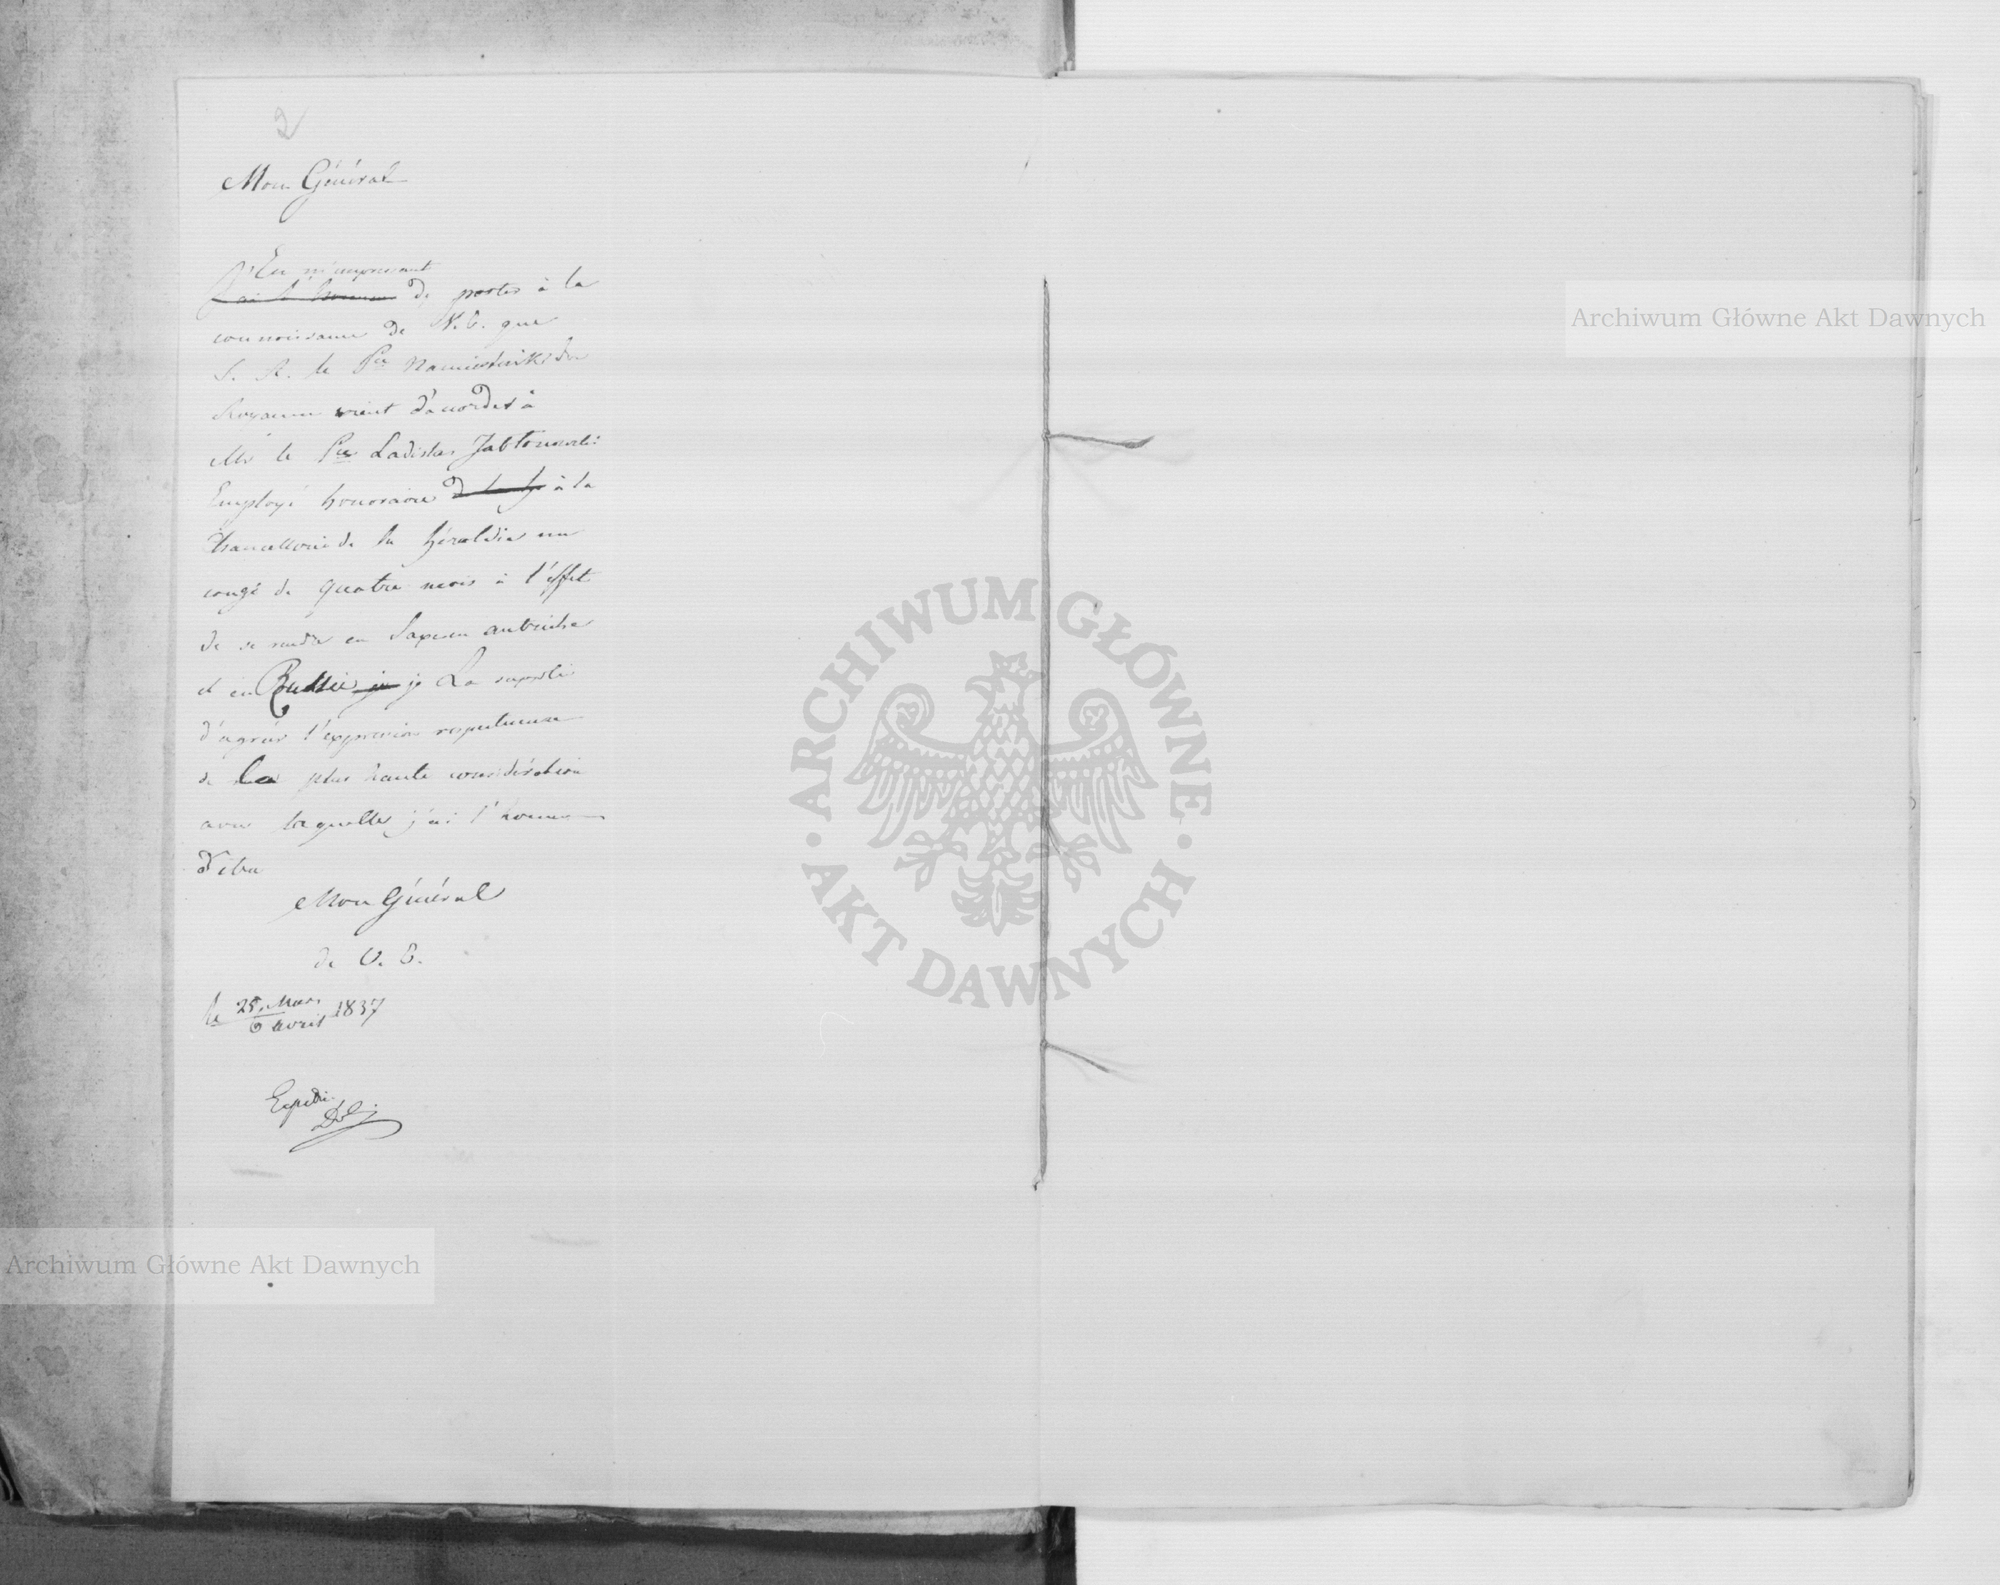 2
Mon Général
En m'empressant
J'ai l'honneur de porter à la
connoissance de V. E. que
S. A. le Pce Namiestnik du
Royaume vient d'accorder à
Mr le Pce Ladislas Jabłonowski
Employé honoraire de la h à la
Chancellerie de la héraldie un
congé de quatre mois à l'effet
de se rendre en Saxe en autriche
et en Russie je je La supplie
d'agréer l'expression respectueuse
de la plus haute considération
avec laquelle j'ai l'honneur
d'être
Mon Général
de V. E.
le 25 Mars
6 avril 1837
Expedié
Archiwum Główne Akt Dawnych
Archiwum Główne Akt Dawnych
ARCHIWUM GŁÓWNE · AKT DAWNYCH ·